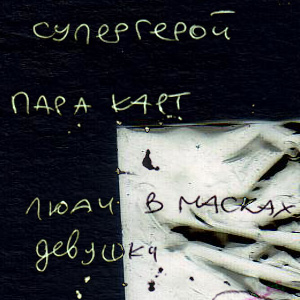 супергерой
ПАРА КАРТ
люди В МАСКАХ
девушки